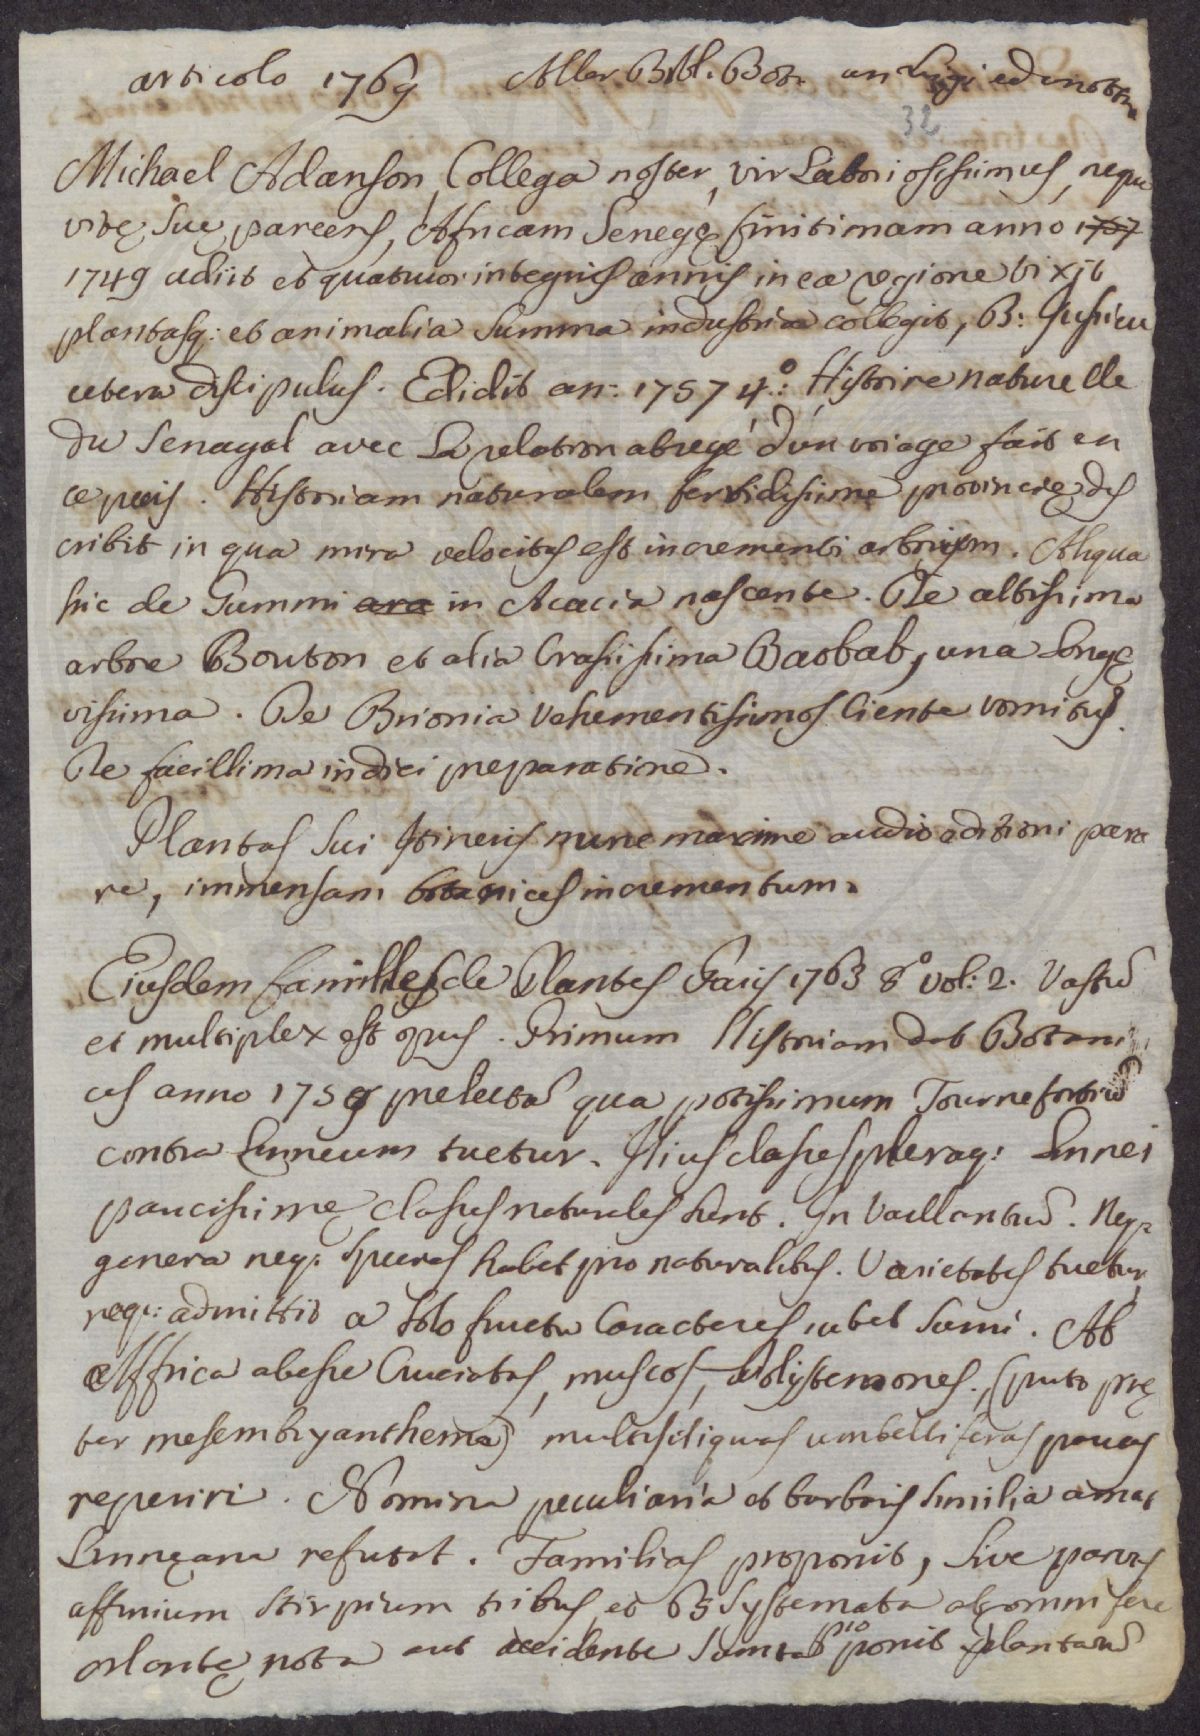 articolo 1769 Aller Bibl. Bot. ed
32
Michael Adanson, Collega noster, vir Laboriosissimus, neque
vitę suę parcens, Africam Senegę finitimam anno 1757
1749 adiit et quatuor integris annis in ea regione vixit
plantasq: et animalia summa industria collegit, B: Jussieu
cetera discipulus. Edidit an: 1757 4.º: Histoire naturelle
du Senagal avec La relation abregé d'un voiage fait en
ce pais. Historiam naturalem fervidissimę provincię des
cribit in qua mira velocitas est incrementi arborum. Aliqua
hic de Gummi ara in Acacia nascente. De altissima
arbore Bouton et alia Crassissima Baobab, una Longę
vissima. De Brionia vehementissimos ciente vomitus.
De facillima indici preparatione.
Plantas sui Itineris nunc maxime audio editioni para
re, immensam botanices incrementum.
Eiusdem familles de Plantes Paris 1763 8º vol: 2. Vastũ
et multiplex est opus. Primum Historiam dat Botani
ces anno 1759 prelectã qua potissimum Tournefortiũ
contra Linneum tuetur. Illius classes pleraq: Linnei
paucissimę classes naturales sunt. In Vaillantiũ. Neq:
genera neq: species habet pro naturalibus. Varietates tuetur,
neq: admittit a solo fructu Caracteres iubet sumi. Ab
Affrica abesse Cruciatas, muscos, Polystemones, (puto prę
ter mesembryanthema) multisiliquas umbelliferas paucas
reperiri. Nomina peculiaria et barbaris similia amat
Linnęana refutat. Familias proponit, sive parvas
affinium stirpium tribus, et 65 Systemata ab omni fere
plantę nota aut accidente sumta pponit plantarũ